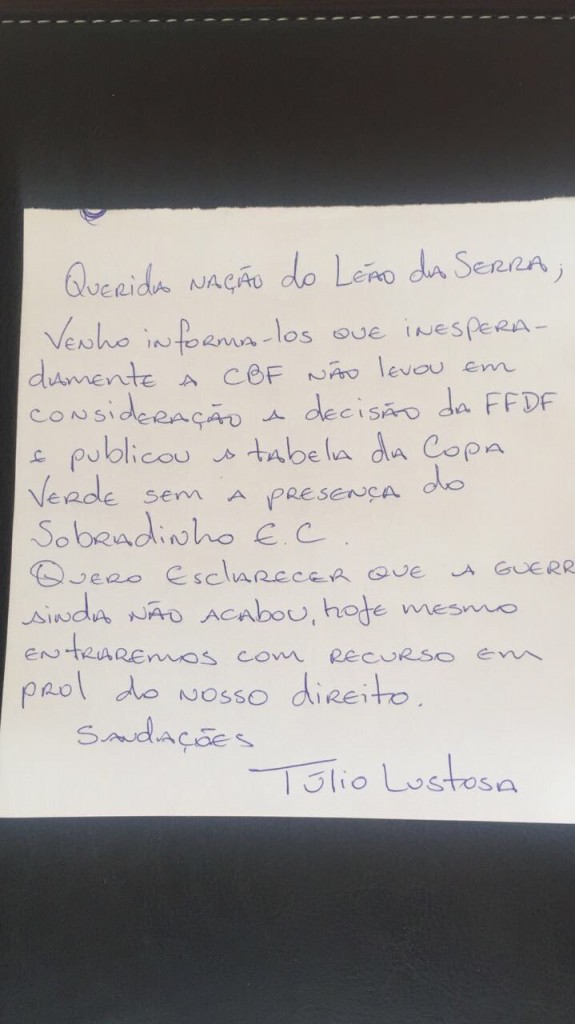 Querida nação do Leão da Serra,
Venho informa-los que inespera-
damente a CBF não levou em
consideração a decisão da FFDF
e publicou a tabela da Copa
Verde sem a presença do
Sobradinho E.C.
Quero esclarecer que a guerr
ainda não acabou, hoje mesmo
entraremos com recurso em
prol do nosso direito.
Saudações
Túlio Lustosa